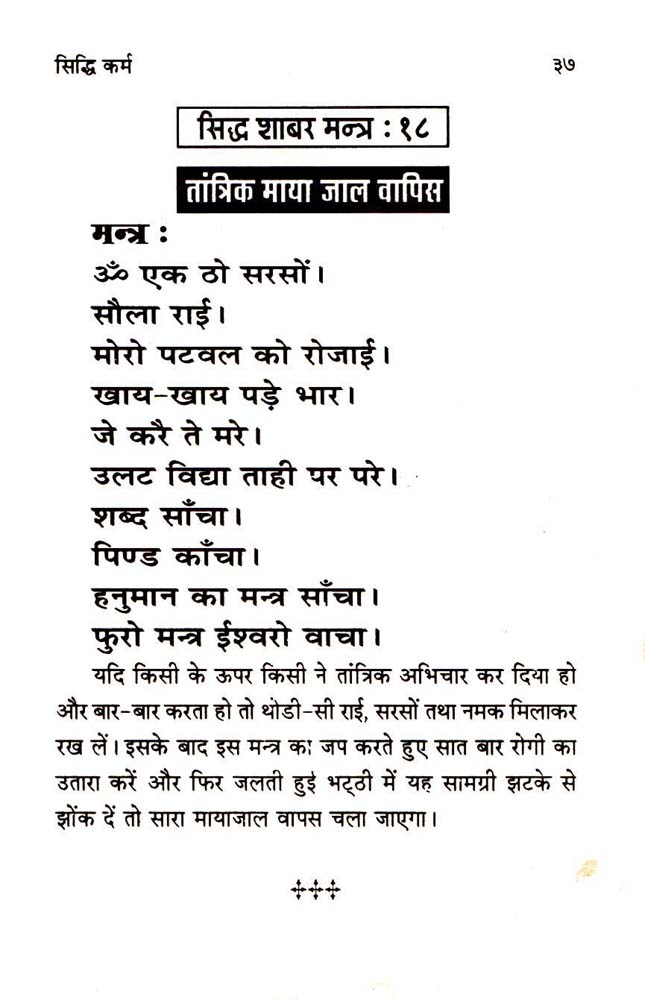 सिद्धि कर्म ३७
सिद्ध शाबर मन्त्र : १८
तांत्रिक माया जाल वापिस
मन्त्र :
ॐ एक ठो सरसों।
सौला राई।
मोरो पटवल को रोजाई।
खाय-खाय पड़े भार।
जे करै ते मरे।
उलट विद्या ताही पर परे।
शब्द साँचा।
पिण्ड काँचा।
हनुमान का मन्त्र साँचा।
फुरो मन्त्र ईश्वरो वाचा।
यदि किसी के ऊपर किसी ने तांत्रिक अभिचार कर दिया हो
और बार-बार करता हो तो थोडी-सी राई, सरसों तथा नमक मिलाकर
रख लें। इसके बाद इस मन्त्र का जप करते हुए सात बार रोगी का
उतारा करें और फिर जलती हुई भट्ठी में यह सामग्री झटके से
झोंक दें तो सारा मायाजाल वापस चला जाएगा।